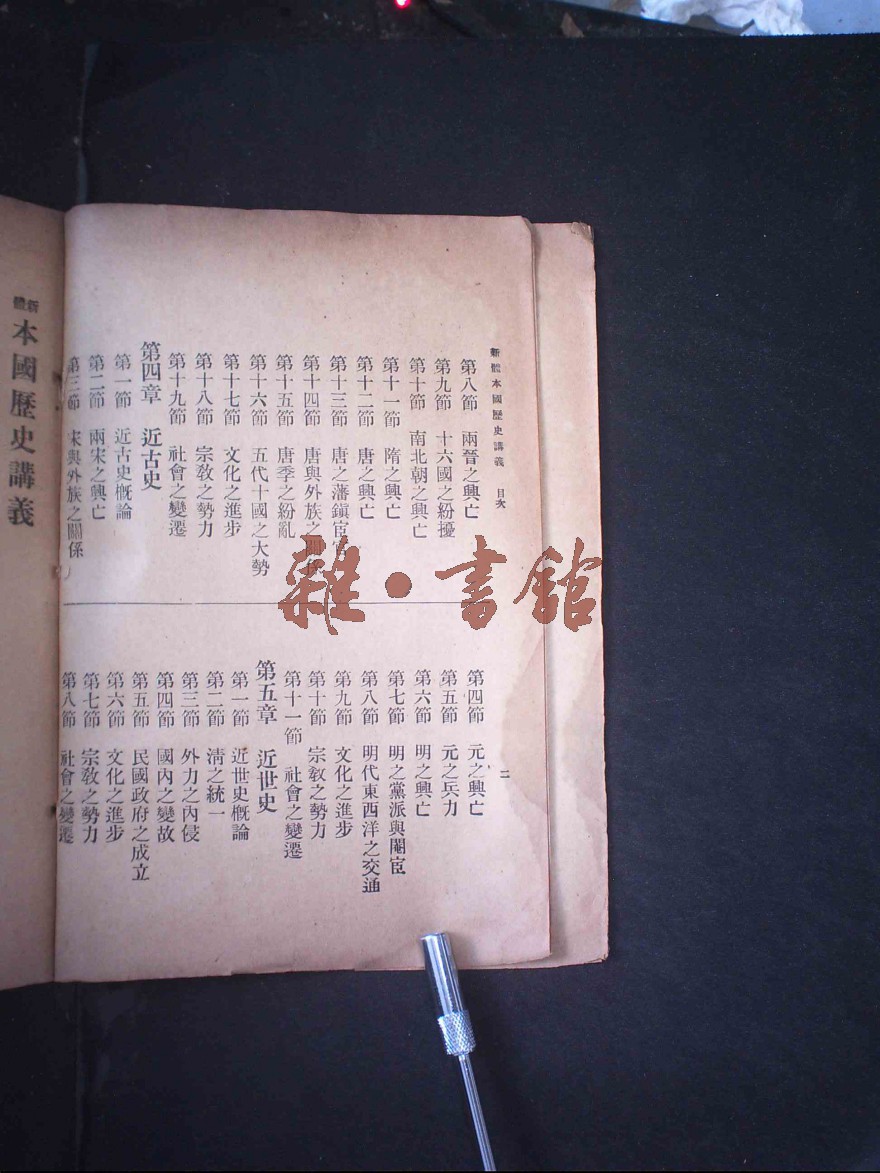 新體本國歷史講義 目次
第八節 兩晉之興亡
第九節 十六國之紛擾
第十節 南北朝之興亡
第十一節 隋之興亡
第十二節 唐之興亡
第十三節 唐之藩鎭宦官
第十四節 唐與外族之關係
第十五節 唐季之紛亂
第十六節 五代十國之大勢
第十七節 文化之進步
第十八節 宗敎之勢力
第十九節 社會之變遷
第四章 近古史
第一節 近古史槪論
第二節 兩宋之興亡
第三節 宋與外族之關係
二
第四節 元之興亡
第五節 元之兵力
第六節 明之興亡
第七節 明之黨派與閹宦
第八節 明代東西洋之交通
第九節 文化之進步
第十節 宗敎之勢力
第十一節 社會之變遷
第五章 近世史
第一節 近世史槪論
第二節 淸之統一
第三節 外力之內侵
第四節 國內之變故
第五節 民國政府之成立
第六節 文化之進步
第七節 宗敎之勢力
第八節 社會之變遷
新體
本國歷史講義
雜·書館